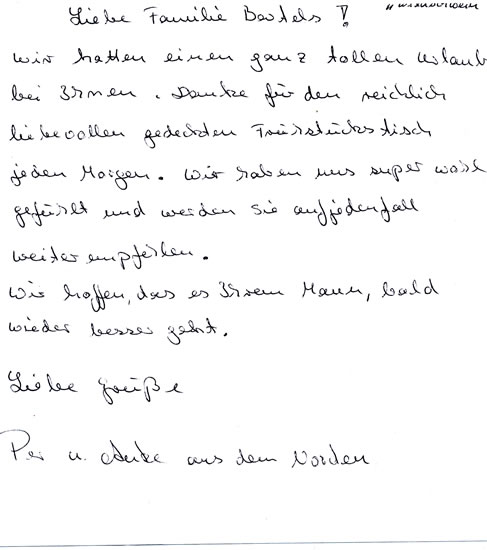 Liebe Familie Bartels !
wir hatten einen ganz tollen Urlaub
bei Ihnen. Danke für den reichlich
liebevollen gedeckten Frühstückstisch
jeden Morgen. Wir haben uns super wohl
gefühlt und werden sie aufjedenfall
weiterempfehlen.
Wir hoffen, das es Ihrem Mann, bald
wieder besser geht.
Liebe Grüße
u. Anke aus dem Norden